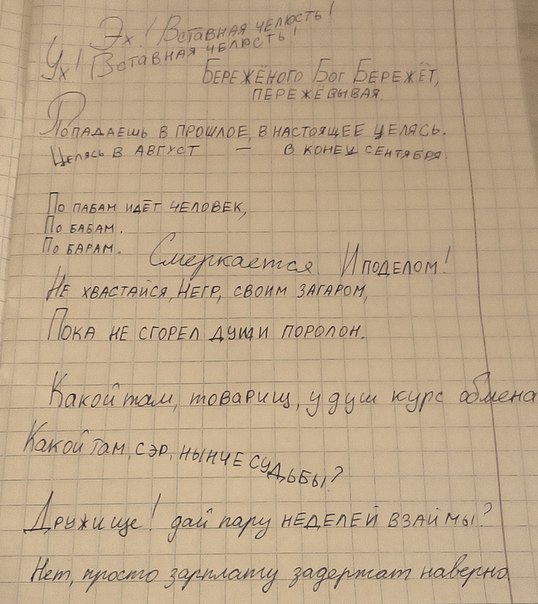 Эх! Вставная челюсть!
Ух! Вставная челюсть!
Бережёного Бог Бережёт,
пережёвывая.
Попадаешь в прошлое, в настоящее целясь.
Целясь в август – в конец сентября.
По пабам идёт человек,
По бабам.
По барам.
Смеркается. И поделом!
Не хвастайся, негр, своим загаром,
Пока не сгорел души поролон.
Какой там, товарищ, у душ курс обмена
Какой там, сэр, нынче судьбы?
Дружище! дай пару неделей взаймы?
Нет, просто зарплату задержат наверно